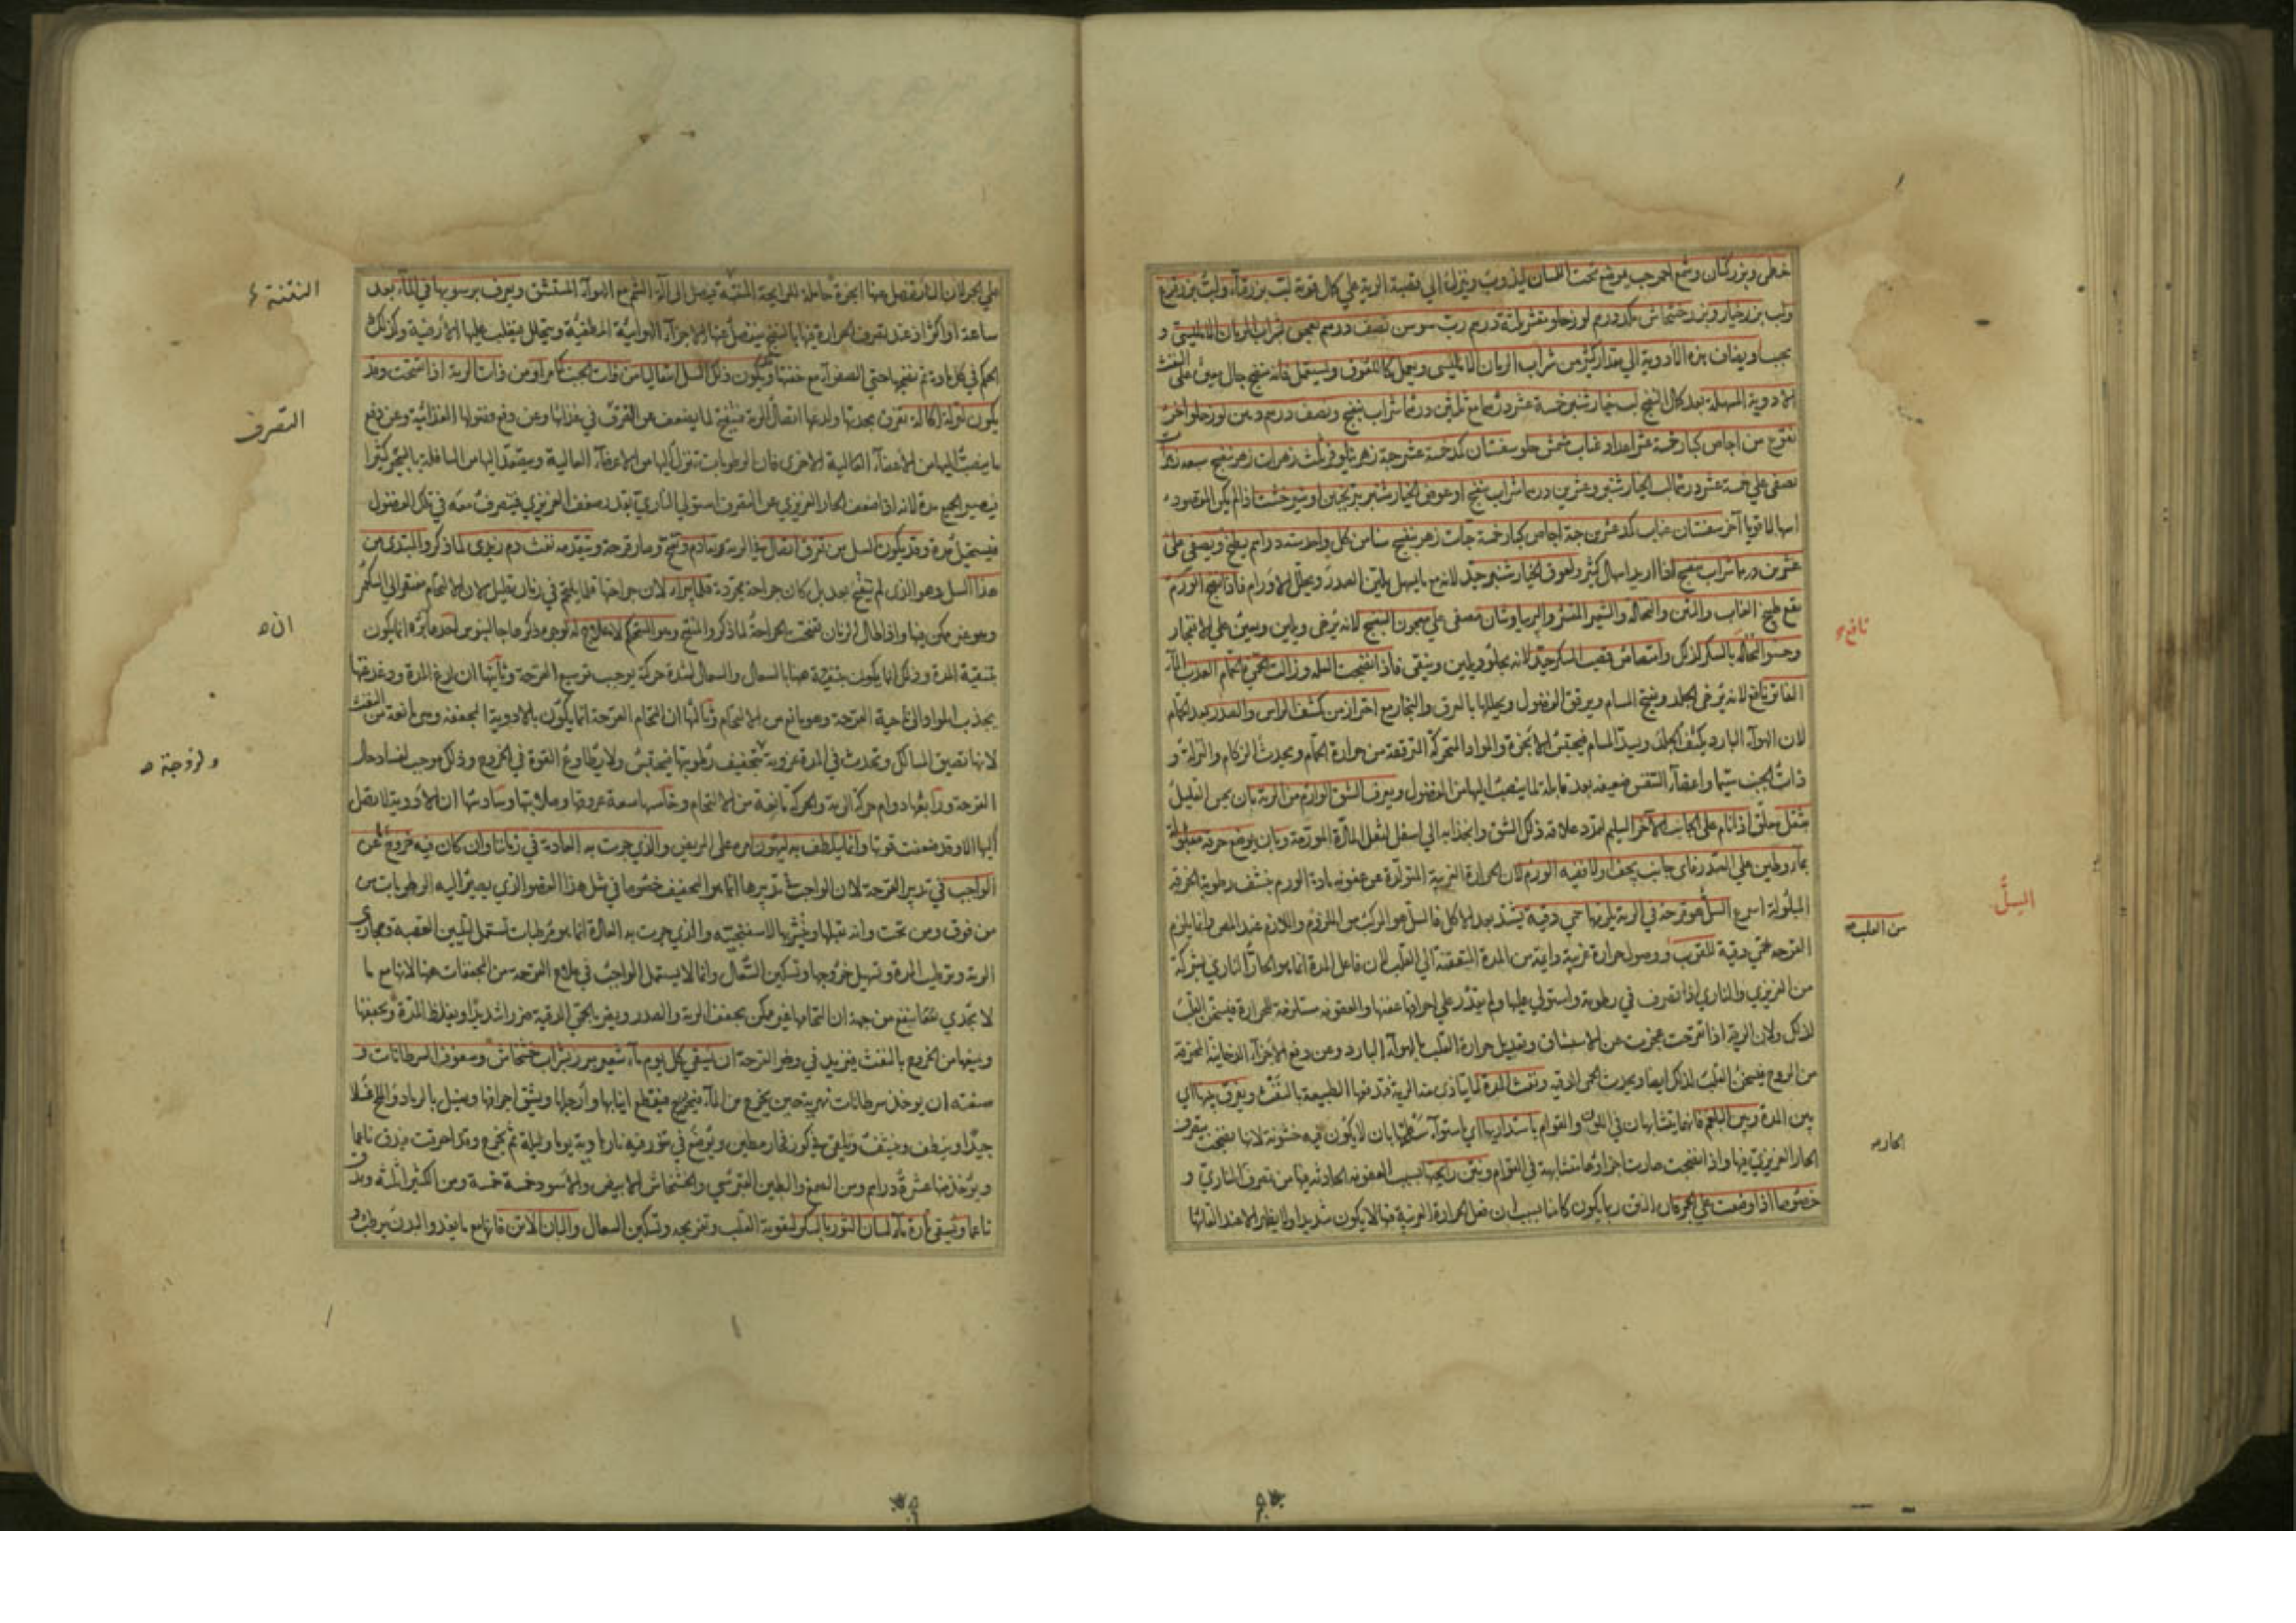 خطمي وبزر كتان وشمع احمر حب يوضع تحت اللسان ليذوب وينزل الي قصبة الرية علي كمال قوة لب بزر قثاء ولب بزر قرع
ولب بزر خيار وبزر خشخاش مكد درهم لوز حلو مقشر ثلثة درهم رب سوس نصف درهم يعجن بشراب
يحبب ويضاف هذه الأدوية الي مقدار كثير من شراب ويعمل كاللعوق ويستعمل فانه منضج جال معين علي النفث
الادوية المسهلة بعد كمال النضج لب خيار شنبر خمسة عشر درهما مع ثلثين درهما شراب بنفسج ونصف درهم دهن لوز حلو آخر
نقوع من اجاص كبار خمسة عشر اعداد عناب مشمش حلو سفستان مكد خمسة عشر حبة زهر نيلوفر ثلث زهرات زهر بنفسج سبعة
يصفي علي خمسة عشر درهما لب الخيار شنبر وعشرين درهما شراب بنفسج او عوض الخيار شنبر ترنجبين او شيرخشت اذا لم يكن المقصود
اسهالا قويا آخر سفستان عناب مكد عشرين حبة اجاص كبار خمسة حبات زهر بنفسج سنا من كل واحد ستة دراهم يطبخ ويصفي علي
عشرين درهما شراب بنفسج اذا اريد اسهال كثير ولعوق الخيار شنبر جيد لانه مع ما يسهل يلين الصدر ويحلل الاورام فاذا نضج الورم
نفع طبيخ العناب والتين والنخالة والشعير المقشر والبرسياوشان مصفي علي معجون البنفسج لانه يرخي ويلين ويعين علي الانفجار
وحسو النخالة بالسكر لذلك وامتصاص قصب السكر جيد لانه يجلو ويلين وينقي فاذا نضجت العلة وزالت الحمي فالحمام العذب الماء
الفاتر نافع لانه يرخي الجلد ويفتح المسام ويرقق الفضول ويحللها بالعرق والبخار مع احتراز من كشف الراس والصدر بعد الحمام
لان الهواء البارد يكثف الجلد ويسد المسام فيحتبس الابخرة والمواد المتحركة المترققة من حرارة الحمام ويحدث الزكام والنزلة و
ذات الجنب سيما واعضاء التنفس ضعيفة بعد قابلة لما ينصب اليها من الفضول ويعرف الشق الوارم من الرية بان يحس العليل
بثقل معلق اذا نام علي الجانب الآخر السليم لتمدد علاقة ذلك الشق وانجذابه الي اسفل لثقل المادة المورمة وبان يوضع خرقة مبلولة
بماء وطين علي الصدر فاي جانب يجف اولا ففيه الورم لان الحرارة الغريبة المتولدة عن عفونة مادة الورم ينشف رطوبة الخرقة
المبلولة اسرع السل هو قرحة في الرية يلزمها حمي دقية يشتد بعد الاكل فالسل هو المركب من الملزوم واللازم عند المص وانما يلزم
القرحة حمي دقية للقرب ووصول حرارة غريبة دائمة من المدة المتعفنة الي القلب لان فاعل المدة انما هو الحار الناري بشركة
من الغريزي والناري اذا تصرف في رطوبة واستولي عليها ولم يقدر علي احراقها عفنها والعفونة مستلزمة للحرارة فيسخن القلب
لذلك ولان الرية اذا تقرحت عجزت عن الاستنشاق وتعديل حرارة القلب بالهواء البارد وعن دفع الاجزاء الدخانية المحترقة
من الروح فيسخن القلب لذلك ايضا ويحدث الحمي الدقية ونفث المدة لما يتاذي منه الرية فتدفعها الطبيعة بالنفث ويفرق بينها اي
بين المدة وبين البلغم فانهما يتشابهان في اللون والقوام باستدارتها اي استواء سطحها بان لا يكون فيه خشونة لانها نضجت بتصرف
الحار الغريزي فيها واذا نضجت صارت اجزاؤها متشابهة في القوام وبنتن رايحتها بسبب العفونة الحادثة فيها من تصرف الناري و
خصوصا اذا وضعت علي الجمر فان النتن ربما يكون كامنا بسبب ان فعل الحرارة الغريبة فيها لا يكون شديدا ولا يظهر الا عند القائها
نافع
من القلب
السل
الحار
علي الجمر لان النار تفصل عنها ابخرة حاملة للرايحة المنتنة فيصل الي آلة الشم مع الهواء المستنشق ويعرف برسوبها في الماء بعد
ساعة او اكثر اذ عند تصرف الحرارة فيها بالنضج ينفصل عنها الاجزاء الهوائية المطفئة ويتحلل فيغلب عليها الأرضية وكذلك
الحكم في كل مادة تم نضجها حتي الصفراء مع خفتها ويكون ذلك السل انتقاليا من ذات الجنب كما مر او من ذات الرية اذا انفتحت وقد
يكون لنزلة اكالة تفرق بحدتها ولذعها اتصال الرية فتقيح لما يضعف عن التصرف في غذائها وعن دفع فضولها الغذائية وعن دفع
ما ينصب اليها من الأعضاء العالية الاخري فان الرطوبات تنزل اليها من الاعضاء العالية ويتصعد اليها من السافلة بالتبخر كثيرا
فيصير الجميع مدة لانه اذا ضعف الحار الغريزي عن التصرف استولي الناري بقدر ضعف الغريزي فيتصرف معه في تلك الفضول
فيستحيل مدة وقد يكون السل من تفرق اتصال في الرية وتقادم وتقيح وصار قرحة ويتقدمه نفث دم زبدي لما ذكر والمبتدي من
هذا السل وهو الذي لم يتقيح بعد بل كان جراحة مجردة فلما يبرا لان جراحتها قلما يلتحم في زمان قليل لان الالتحام مفتقر الي السكون
وهو غير ممكن فيها واذا طال الزمان تقيحت الجراحة لما ذكر والمتقيح وهو المستحكم لا علاج له لوجوه ذكرها جالينوس احدها ان برءه انما يكون
بتنقية المدة وذلك انما يكون ههنا بالسعال والسعال لشدة حركة يوجب توسيع القرحة وثانيها ان لذع المدة ودغدغتها
يجذب المواد الي ناحية القرحة وهو مانع من الالتحام وثالثها ان التحام القرحة انما يكون بالادوية المجففة وهي مانعة من النفث
لانها تضيق المسالك وتحدث في المدة غروية بتجفيف رطوبتها فيحتبس ولا يطاوع القوة في الخروج وذلك موجب لفساد حال
القرحة ورابعها دوام حركة الرية والحركة مانعة من الالتحام وخامسها سعة عروقها وصلابتها وسادسها ان الادوية لا تصل
اليها الا وقد ضعفت قوتها وانما يتلطف به ليهون امره علي المريض والذي جرت به العادة في زماننا وان كان فيه خروج عن
الواجب في تدبير القرحة لان الواجب في تدبيرها انما هو التجفيف خصوصا في مثل هذا العضو الذي يصير اليه الرطوبات من
من فوق ومن تحت وانه يقبلها ويشربها لاسفنجيته والذي جرت به العادة انما هو مرطبات تستعمل لتليين القصبة ومجاري
الرية وترطيب المدة وتسهيل خروجها وتسكين السعال وانما لا يستعمل الواجب في علاج القرحة من المجففات ههنا لانها مع ما
لا تجدي نفعا ينفع من جهة ان التحامها غير ممكن يجفف الرية والصدر ويضر بالحمي الدقية ضررا شديدا ويغلظ المدة ويجففها
ويمنعها من الخروج بالنفث فيزيد في وضر القرحة ان يسقي كل يوم ماء شعير مبرز بشراب خشخاش وسفوف السرطانات و
صفته ان يوخذ سرطانات نهرية حين يخرج من الماء فيقطع انيابها وارجلها ويشق اجوافها ويغسل بالرماد والملح غسلا
جيدا وينظف وينشف ويلقي في كوز فخار مطين ويوضع في تنور فيه نار هادية يوما وليلة ثم يخرج وقد احرقت فيدق ناعما
ويؤخذ منها عشرة دراهم ومن الصمغ والطين القبرسي والخشخاش الابيض والأسود خمسة خمسة ومن الكثيرا ثلثة ويدق
ناعما ويسقي تارة ماء لسان الثور بالسكر لتقوية القلب وتفريحه وتسكين السعال والبان الاتن فانها مع ما يغذو البدن يرطب و
النتنة
التصرف
ان
ولزوجة